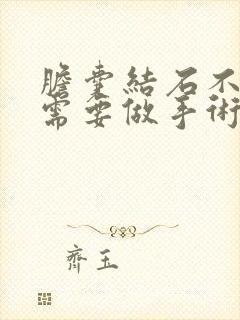 膽囊結石不
需要做手術
齊玉